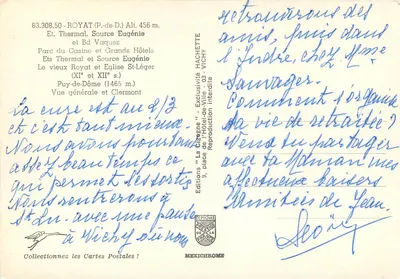 63.308.50 - ROYAT (P.-de-D.) Alt. 456 m.
Et. Thermal, Source Eugénie
et Bd Vaquez
Parc du Casino et Grands Hôtels
Ets Thermal et Source Eugénie
Le vieux Royat et Eglise St-Léger
(XIe et XIIe s.)
Puy-de-Dôme (1465 m.)
Vue générale et Clermont
La cure est au 2/3
et c'est tant mieux.
Nous avons pourtant
assez beau temps ce
qui permet des sorties
Nous rentrerons à
St-Lu. avec une pause
à Vichy où nous
Collectionnez les Cartes Postales !
Editions "La Cigogne" - Exclusivité HACHETTE
3, place de l'Hôtel-de-Ville - 03 - VICHY
Reproduction interdite
MEXICHROME
retrouverons des
amis, puis dans
l'Indre, chez Mme
Sauvager.
Comment s'organise
ta vie de retraitée?
Veux-tu partager
avec ta Maman mes
affectueux baisers
Amitiés de Jean.